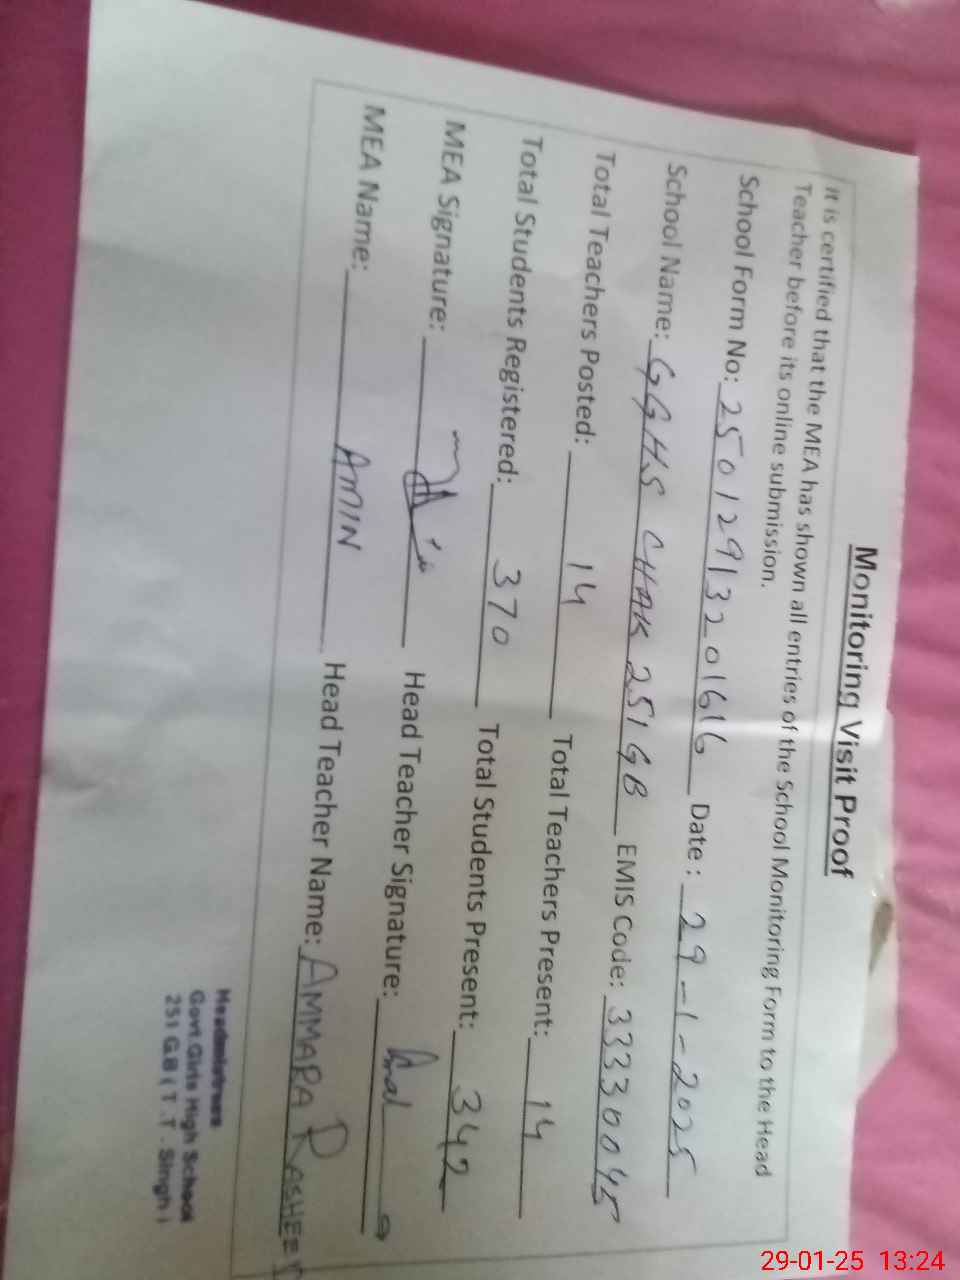 Monitoring Visit Proof
It is certified that the MEA has shown all entries of the School Monitoring Form to the Head
Teacher before its online submission.
School Form No: 25012913201616 Date: 29-1-2025
School Name: GGHS CHAK 251GB EMIS Code: 33330045
Total Teachers Posted: 14 Total Teachers Present: 14
Total Students Registered: 370 Total Students Present: 342
MEA Signature: Head Teacher Signature:
MEA Name: AMIN Head Teacher Name: AMMARA RASHEED
Headmistress
Govt Girls High School
251 G.B ( T.T. Singh )
29-01-25 13:24